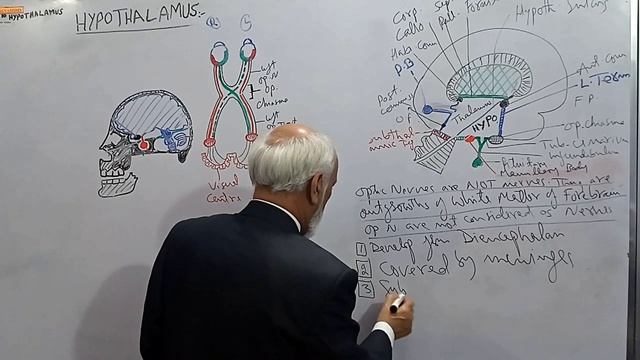 HYPOTHALAMUS
HYPOTHALAMUS:-
Corp.
Callo
Sep
Pell.
Fornix
Hypoth Sulcus
Hab Com
P.B
Post.
Thalamus
HYPO
Ant Com
L. Term
F P.
op. chiasma
Tub. Cinerium
Infundibulum
Mammillary Body
op. n
op.
chiasma
Visual
Centre
Optic Nerves are NOT nerves. They are
outgrowths of White Matter of Forebrain
op N are not considered as Nerves
1 Develop from Diencephalon
2 Covered by meninges
3 Sub